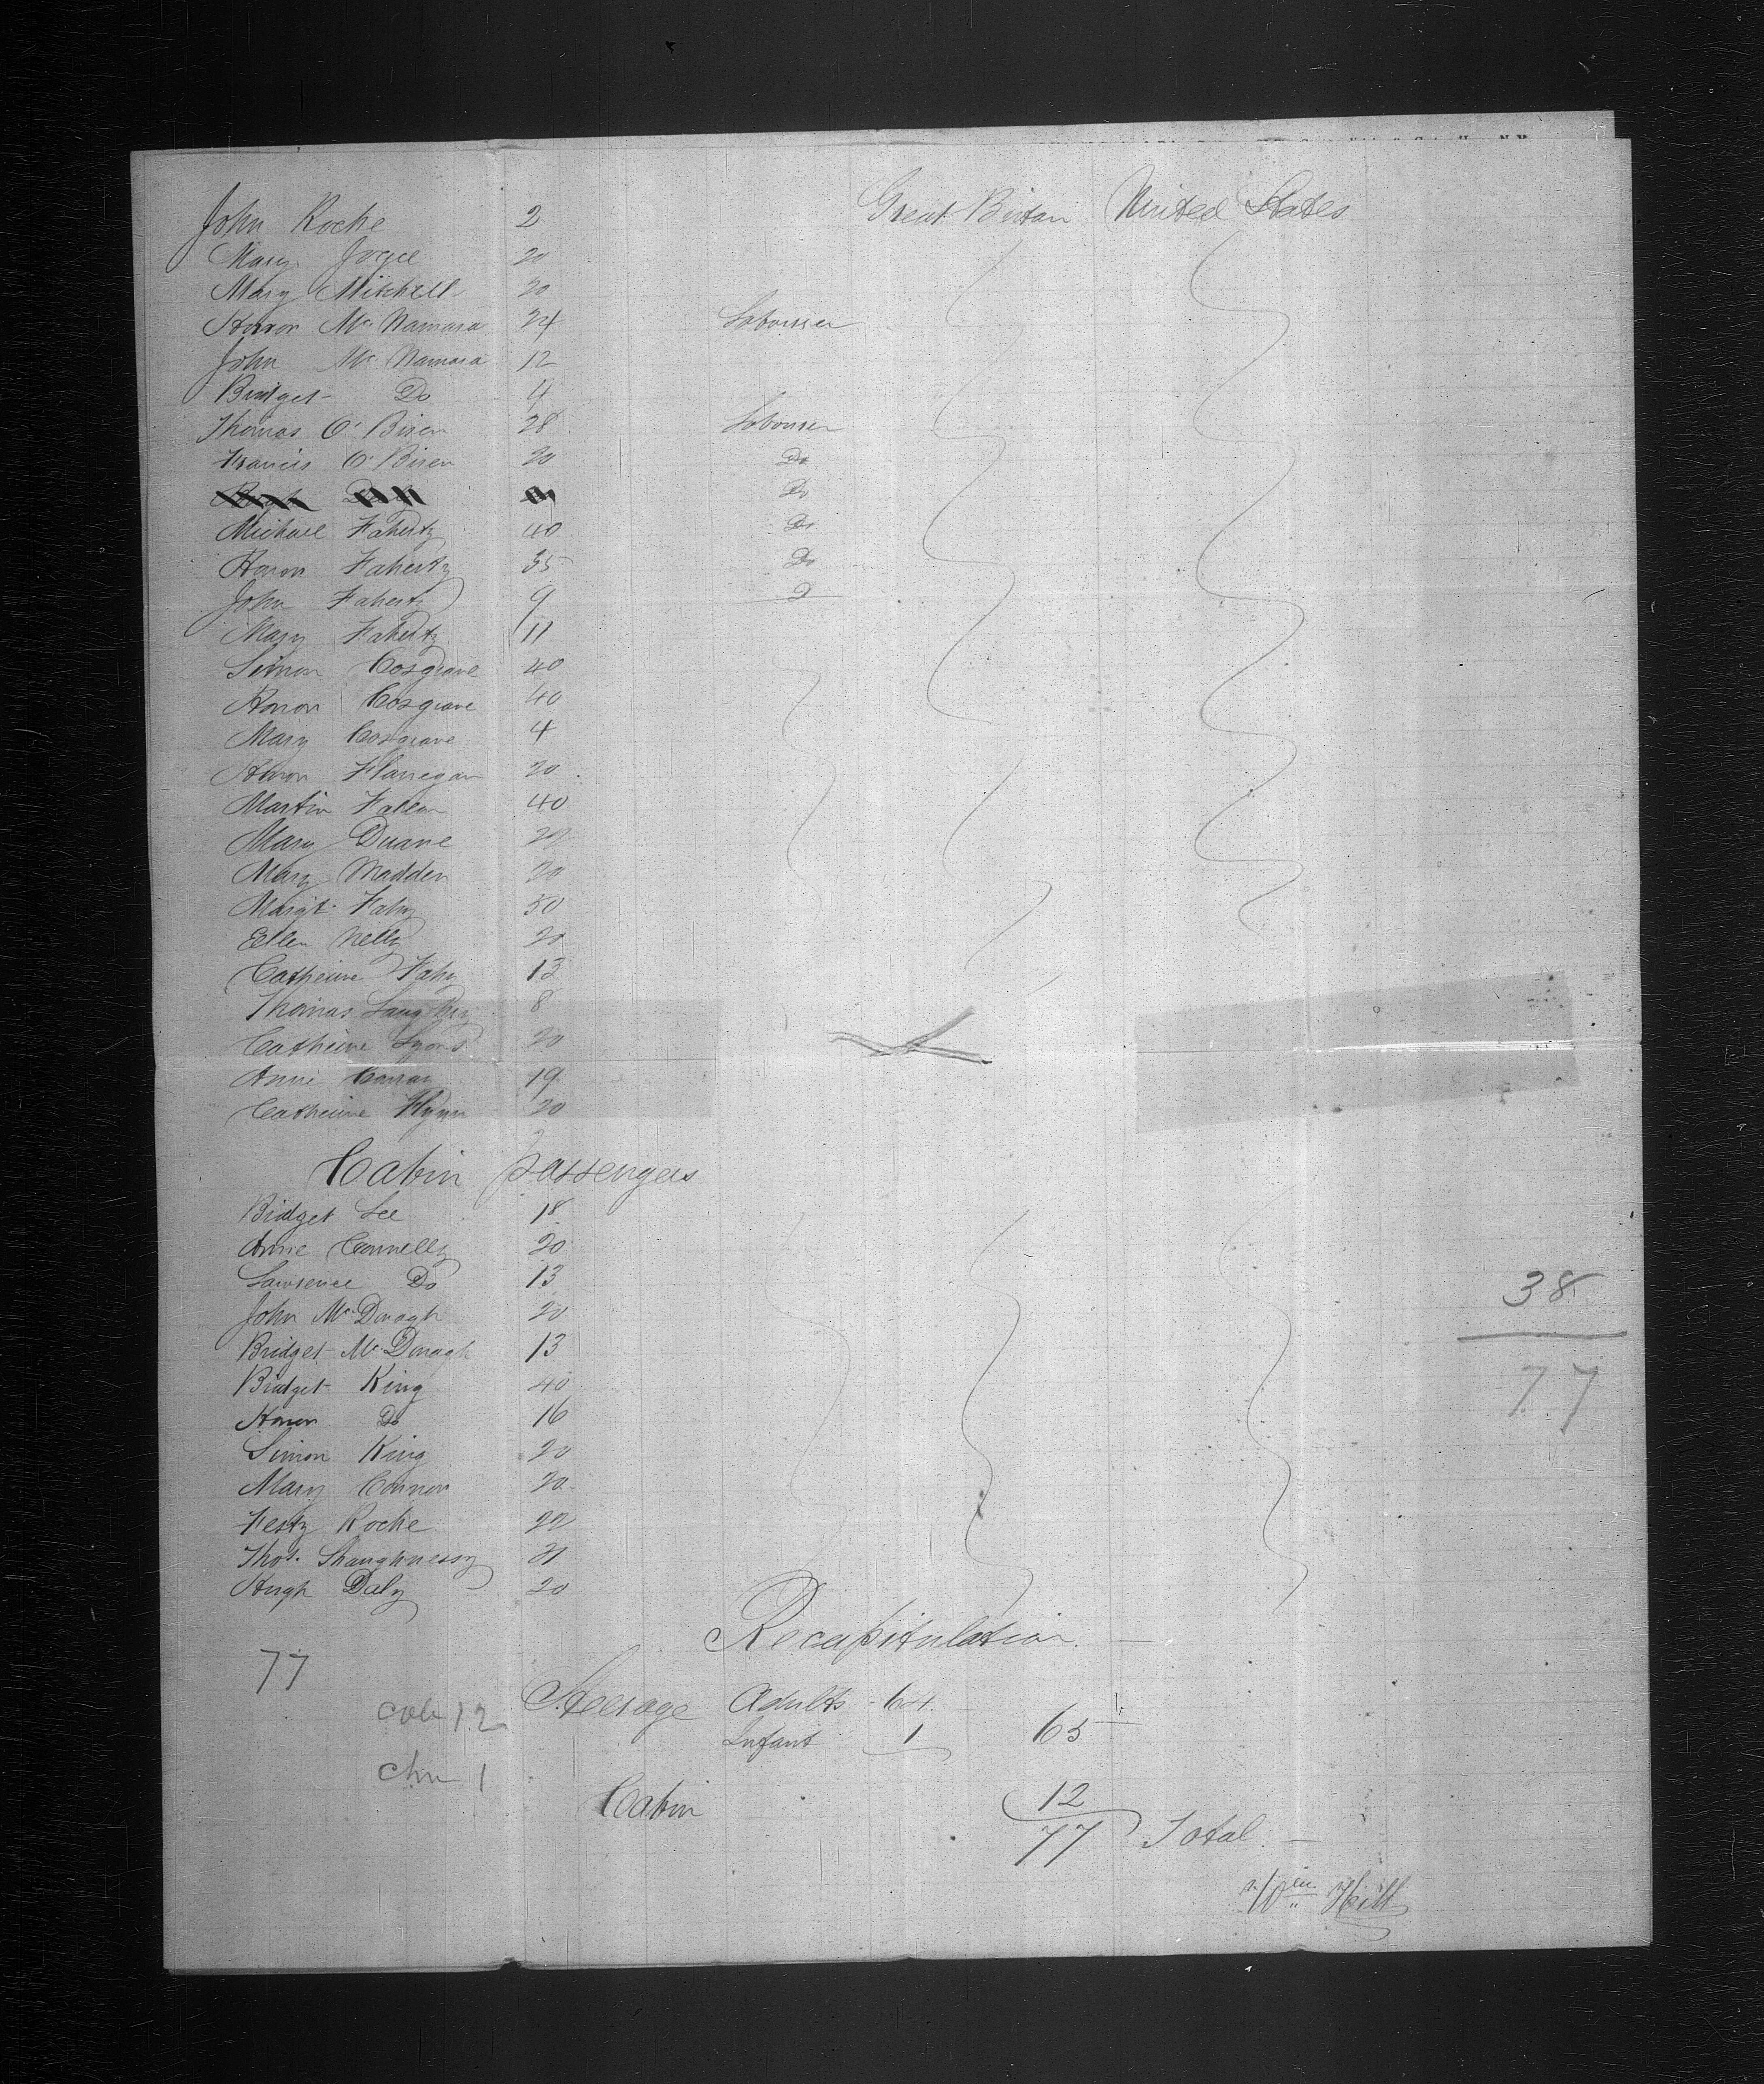 John Roche 2 Great Britan United States
Mary Joyce 20
Mary Mitchell 20
Honor Mc Namara 24 Labourer
John Mc Namara 12
Bridget Do 4
Thomas O' Brien 28 Labourer
Francis O' Brien 20 Do
Do
Michael Faherty 40 Do
Honor Faherty 35 Do
John Faherty 9
Mary Faherty 11
Simon Cosgrave 40
Honor Cosgrave 40
Mary Cosgrave 4
Honor Flanegan 20
Martin Fallon 40
Mary Duane 20
Mary Madden 20
Margt Fahy 50
Ellen Nelly 20
Catherine Fahy 13
Thomas 8
Catherine Lyons 20
Annie 19
Catherine Flynn 20
Cabin passengers
Bridget Lee 18
Annie Connelly 20
Lawrence Do 13
38
John Mc Donagh 20
Bridget Mc Donagh 13
Bridget King 40
77
Honor Do 16
Simon King 20
Mary Connor 20
Festy Roche 22
Thos. Shaughnessy 21
Hugh Daly 20
Recapitulation
77
Steerage Adults 64
cab 12
Infant 1 65
1
Cabin 12
77 Total
Hill